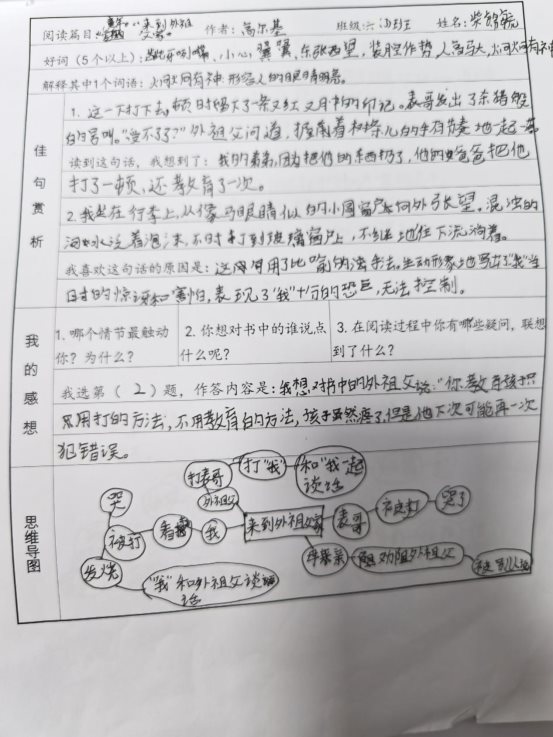 阅读篇目:《童年》"来到外祖父家" 作者:高尔基 班级:六 姓名:
好词(5个以上):龇牙咧嘴、小心翼翼、东张西望、装腔作势、人高马大、炯炯有神
解释其中1个词语:炯炯有神 形容人的眼睛明亮。
佳句赏析
1. 这一下打下去,顿时留下了一条又红又肿的印记。表哥发出了杀猪般
的号叫。"受不了了?"外祖父问道,
读到这句话,我想到了:我的表弟,因为把他的东西扔了,他的爸爸把他
打了一顿,还教育了一次。
2. 我坐在行李上,从像马眼睛似的小圆窗户向外张望。混浊的
河水泛着泡沫,不时打到玻璃窗户上,不住地往下流淌着。
我喜欢这句话的原因是:这两句用了比喻的手法。生动形象地写出了"我"当
时的惊讶和害怕,表现了"我"十分的恐惧,无法控制。
我的感想
1. 哪个情节最触动你?为什么?
2. 你想对书中的谁说点什么呢?
3. 在阅读过程中你有哪些疑问,联想到了什么?
我选第(2)题,作答内容是:我想对书中的外祖父说:"你教育孩子只
只用打的方法,不用教育的方法,孩子虽然疼了,但是他下次可能再一次
犯错误。
思维导图
打表哥
打"我"
和"我"一起谈话
哭
外祖父
被打
看
我
来到外祖父家
表哥
被打
哭了
发烧
"我"和外祖父谈话
母亲
劝阻外祖父